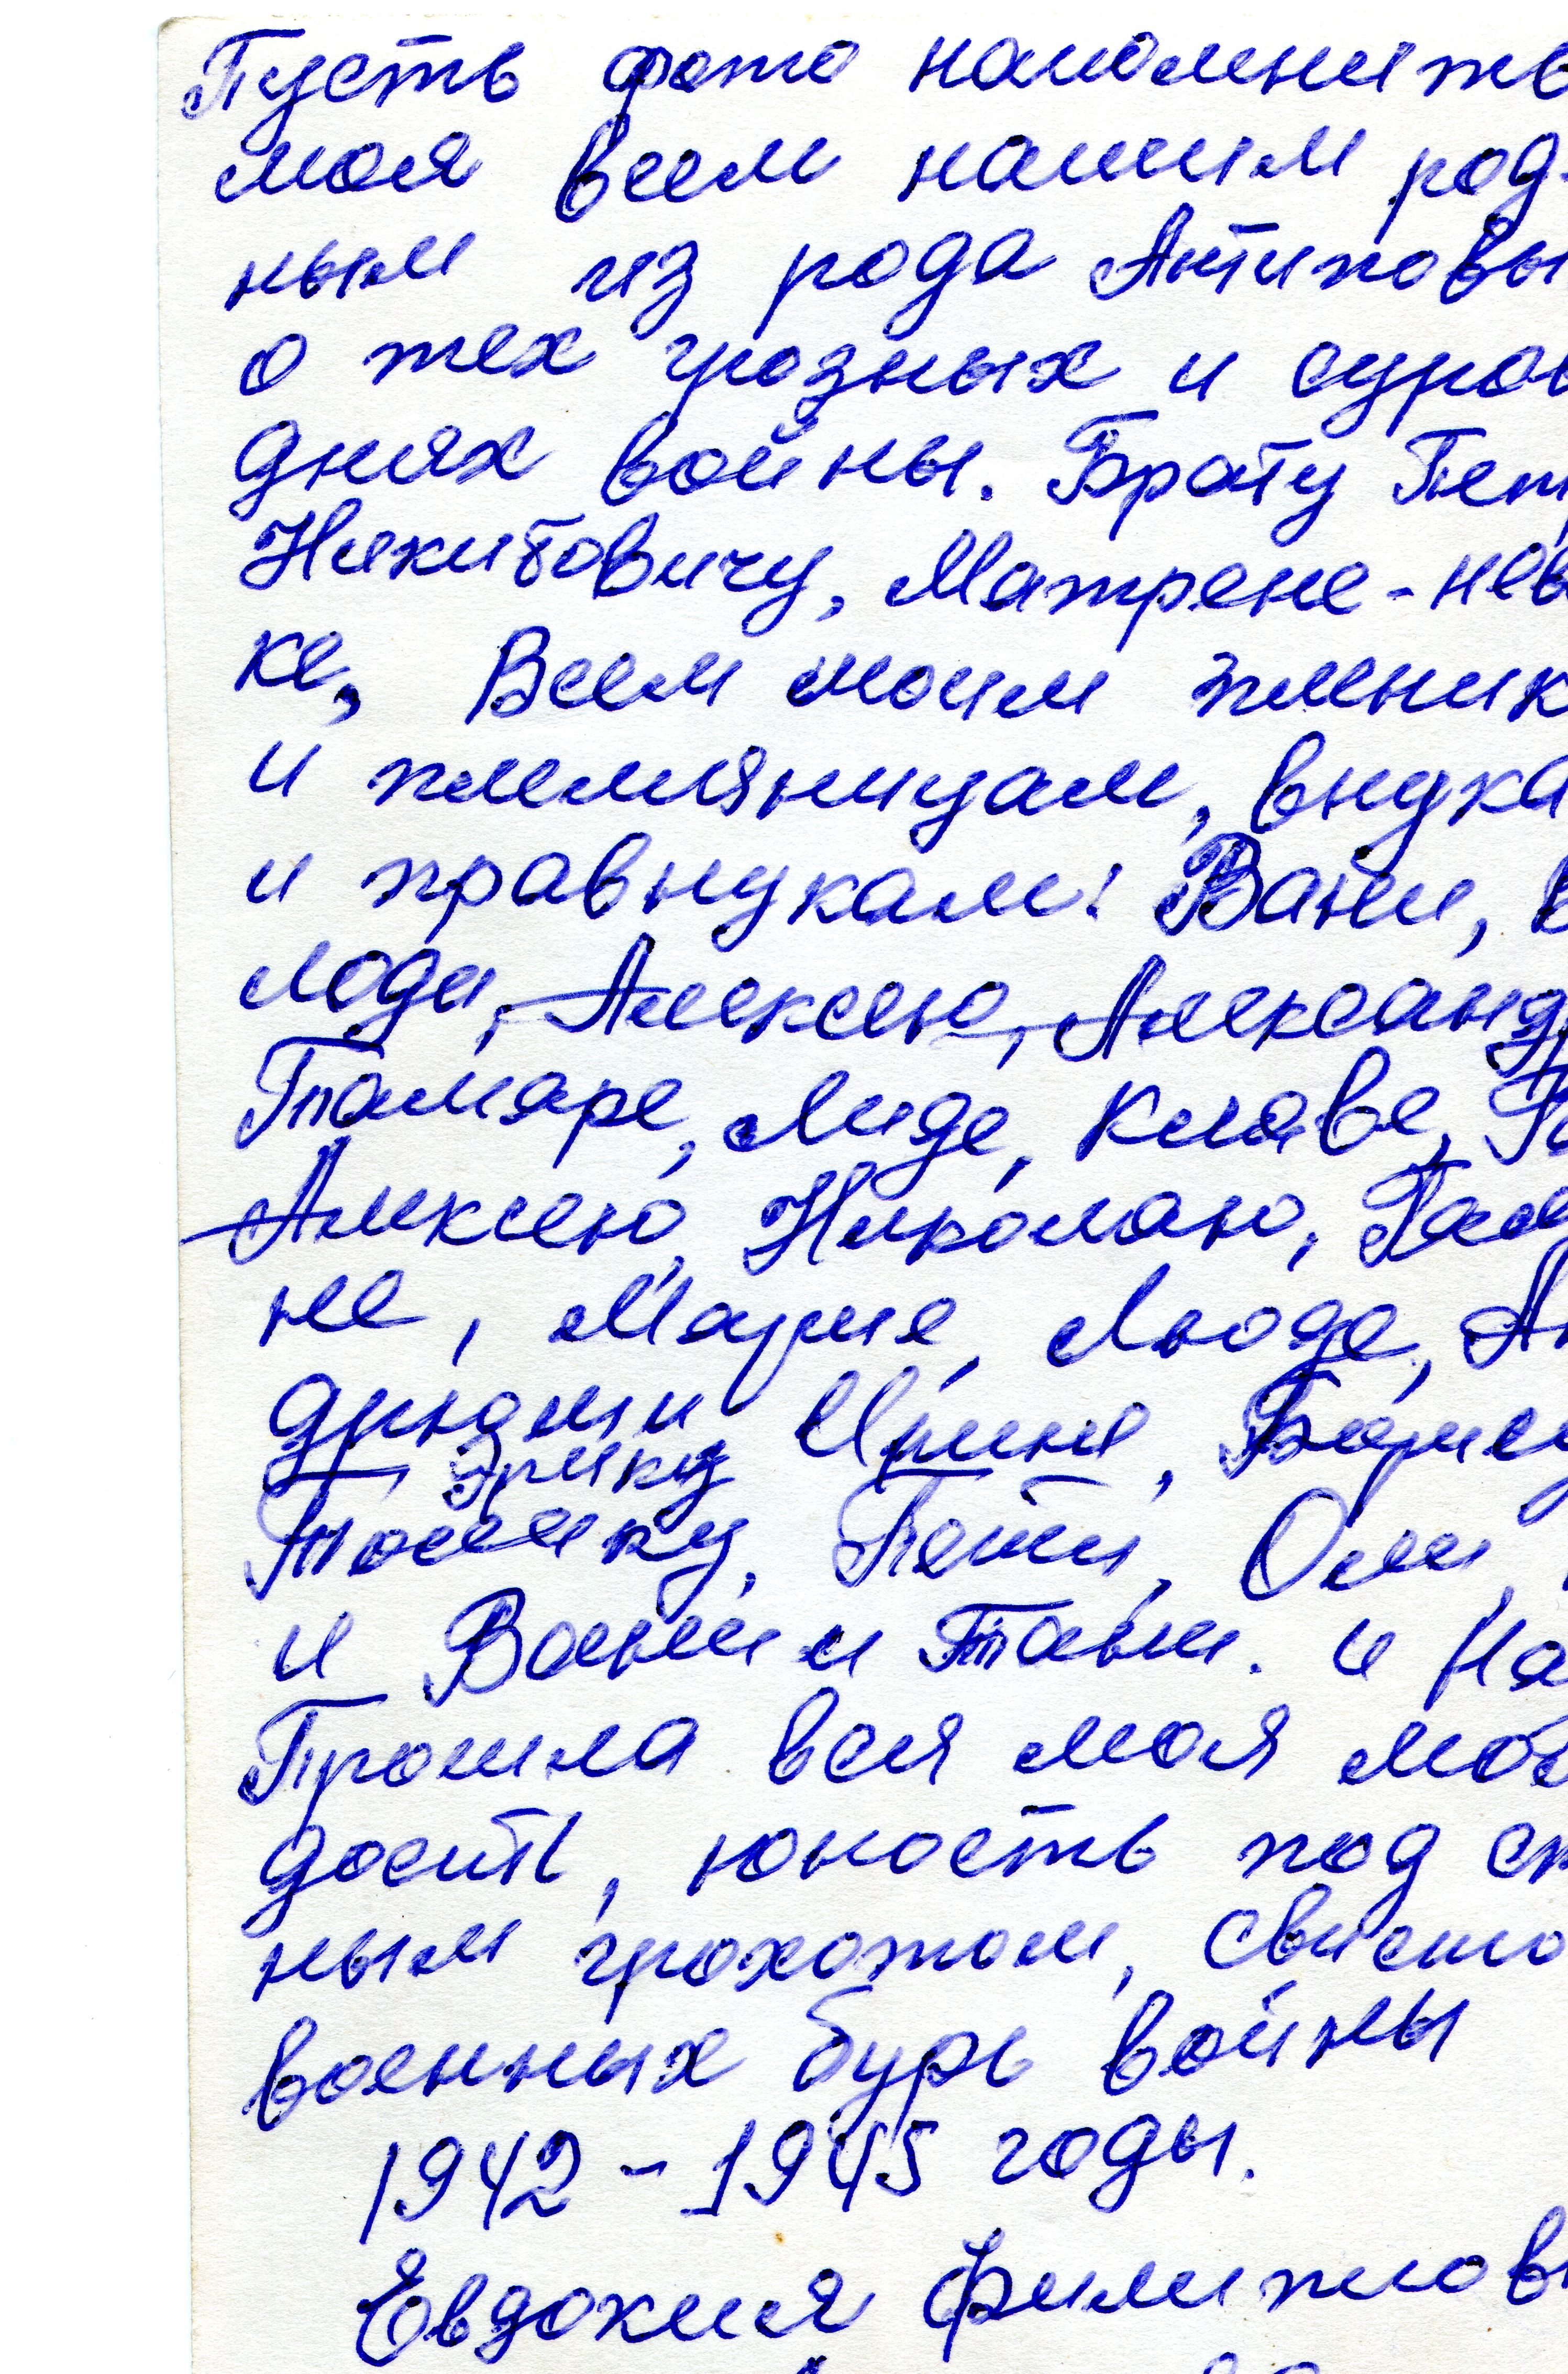 Пусть фото напомнить
моя всем нашим род-
ным из рода Антиповы
о тех грозных и суров
днях войны. Брату Пет
Никитовичу, Матрене - нев
ке, Всем моим плмник
и племяницам, внука
и правнукам: Вани, В
лоди, Алексею, Александр
Тамаре, Лиде, Клаве,
Алексею, Николаю, Гали
не, Марие, Люде, Ан
дрюши Ирине, Борису
Эрику
Тосику, Пети, Оли,
и Вани и Тани. и На
Прошла вся моя мол
дость, юность под ст
ным грохотом, свисто
военных бурь войны
1942 - 1945 годы.
Евдокия Филипповн